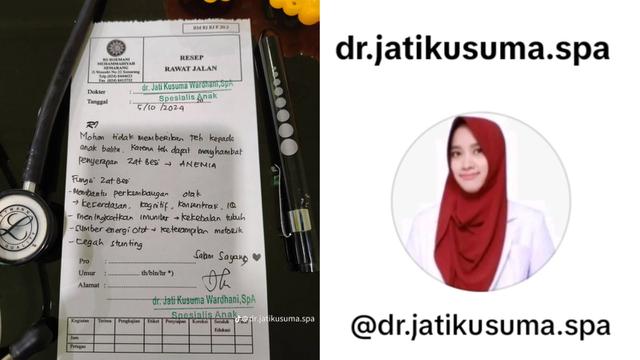 RM RI RJ F 20.3
RS ROEMANI
MUHAMMADIYAH
SEMARANG
Jl Wonodri No 22 Semarang
RESEP
RAWAT JALAN
Dokter :
dr. Jati Kusuma Wardhani,SpA
Spesialis Anak
Tanggal :
5/10/2024 20
R/
Mohon tidak memberikan teh kepada
anak balita. Karena teh dapat menghambat
penyerapan zat besi → ANEMIA
Fungsi Zat Besi
- Membantu perkembangan otak
→ kecerdasan, kognitif, konsentrasi, IQ
- meningkatkan imunitas → kekebalan tubuh
- Sumber energi otot → keterampilan motorik
- Cegah stunting
Salam Sayang
Pro :
Umur : th/bln/hr *)
Alamat :
dr. Jati Kusuma Wardhani,SpA
Spesialis Anak
@dr.jatikusuma.spa
Kegiatan Terima Pengkajian Etiket Penyiapan Koreksi Serah Edukasi
Jam
Petugas
dr.jatikusuma.spa
@dr.jatikusuma.spa